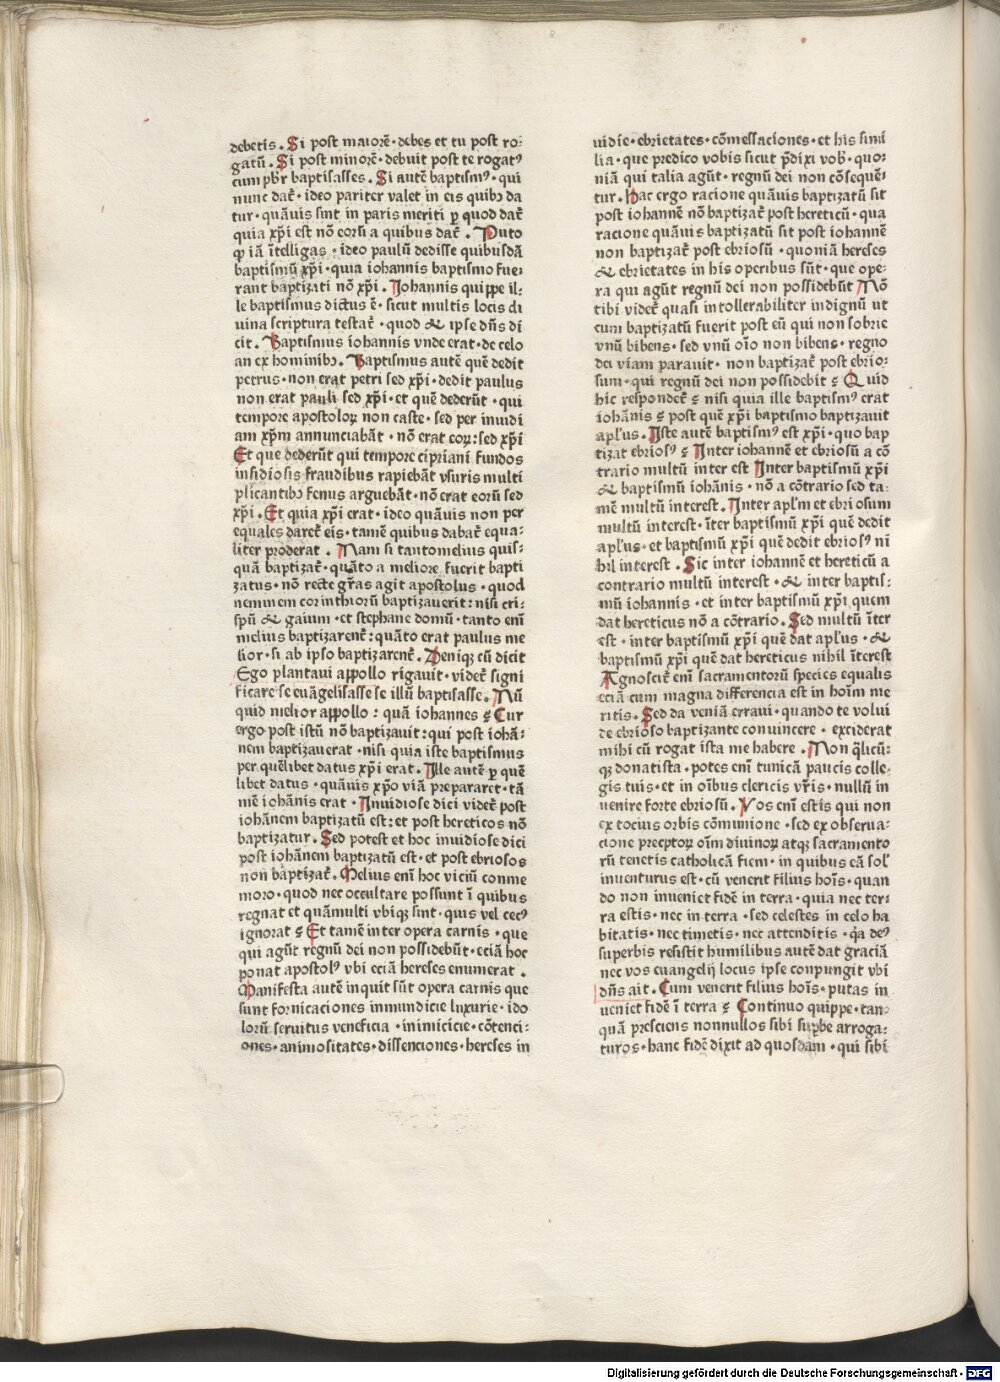 debetis. Si post maiorē· debes et tu post ro⸗
gatū. Si post minorē· debuit post te rogatꝰ
cum pb̄r baptisasses. Si autē baptismꝰ· qui
nunc dat̄· ideo pariter valet in eis quibꝫ da
tur· quāuis sint in paris meriti ꝑ quod dat̄
quia xp̄i est nō eorū a quibus dat̄. Puto
ꝙ iā ītelligas· ideo paulū dedisse quibusdā
baptismū xp̄i· quia iohannis baptismo fue⸗
rant baptizati nō xp̄i. Johannis quippe il⸗
le baptismus dictus ē· sicut multis locis di
uina scriptura testat̄· quod & ipse dn̄s di
cit. Baptismus iohannis vnde erat· de celo
an ex hominibꝫ. Baptismus autē quē dedit
petrus· non erat petri sed xp̄i· dedit paulus
non erat pauli sed xp̄i· et quē dederūt· qui
tempore apostoloꝝ non caste· sed per inuidi
am xp̄m annunciabāt· nō erat eoꝝ: sed xp̄i
Et que dederūt qui tempore cipriani fundos
insidiosis fraudibus rapiebāt vsuris multi
plicantibꝫ fenus arguebāt· nō erat eorū sed
xp̄i. Et quia xp̄i erat· ideo quāuis non per
equales daret̄ eis· tamē quibus dabat̄ equa⸗
liter proderat. Nam si tantomelius quis⸗
quā baptizat̄· quāto a meliore fuerit bapti
zatus· nō recte gr̄as agit apostolus· quod
neminem corinthiorū baptizauerit: nisi cri⸗
spū & gaium· et stephane domū· tanto enī
melius baptizarent̄: quāto erat paulus me
lior· si ab ipso baptizarent̄. Deniqꝫ cū dicit
Ego plantaui appollo rigauit· videt̄ signi
ficare se euāgelisasse se illū baptisasse. Nū
quid melior appollo: quā iohannes ⸮ Cur
ergo post istū nō baptizauit: qui post iohā⸗
nem baptizauerat· nisi quia iste baptismus
per quēlibet datus xp̄i erat. Ille autē ꝑ quē
libet datus· quāuis xp̄o viā prepararet· tā
mē iohānis erat· Inuidiose dici videt̄ post
iohānem baptizatū est: et post hereticos nō
baptizatur. Sed potest et hoc inuidiose dici
post iohānem baptizatū est· et post ebriosos
non baptizat̄. Melius enī hoc viciū conme
moro· quod nec occultare possunt ī quibus
regnat et quāmulti vbiqꝫ sint· quis vel cecꝰ
ignorat ⸮ Et tamē inter opera carnis· que
qui agūt regnū dei non possidebūt· eciā hoc
ponat apostolꝰ vbi eciā hereses enumerat.
Manifesta autē inquit sūt opera carnis que
sunt fornicaciones inmundicie luxurie· ido
lorū seruitus veneficia· inimicicie· cōtenci⸗
ones· animositates· dissenciones· hereses in
uidie· ebrietates· cōmessaciones· et his simi
lia· que predico vobis sicut p̄dixi vob̄· quo⸗
niā qui talia agūt· regnū dei non cōsequē⸗
tur. Hac ergo racione quāuis baptizatū sit
post iohannē nō baptizat̄ post hereticū· qua
racione quāuis baptizatū sit post iohannē
non baptizat̄ post ebriosū· quoniā hereses
& ebrietates in his operibus sūt· que ope⸗
ra qui agūt regnū dei non possidebūt Nō
tibi videt̄ quasi intollerabiliter indignū ut
cum baptizatū fuerit post eū qui non sobrie
vnū bibens· sed vnū oīo non bibens· regno
dei viam parauit· non baptizat̄ post ebrio⸗
sum· qui regnū dei non possidebit ⸮ Quid
hic respondet̄ ⸮ nisi quia ille baptismꝰ erat
iohānis ⸮ post quē xp̄i baptismo baptizauit
apl̄us. Iste autē baptismꝰ est xp̄i· quo bap
tizat ebriosꝰ ⸮ Inter iohannē et ebriosū a cō
trario multū inter est Inter baptismū xp̄i
& baptismū iohānis· nō a cōtrario sed ta⸗
mē multū interest. Inter apl̄m et ebriosum
multū interest· īter baptismū xp̄i quē dedit
apl̄us· et baptismū xp̄i quē dedit ebriosꝰ ni
hil interest. Sic inter iohannē et hereticū a
contrario multū interest· & inter baptis⸗
mū iohannis· et inter baptismū xp̄i quem
dat hereticus nō a cōtrario. Sed multū īter
est· inter baptismū xp̄i quē dat apl̄us· &
baptismū xp̄i quē dat hereticus nihil īterest
Agnoscit̄ enī sacramentorū species equalis
eciā cum magna differencia est in hoīm me
ritis. Sed da veniā erraui· quando te volui
de ebrioso baptizante conuincere· exciderat
mihi cū rogat ista me habere. Non q̄licū⸗
qꝫ donatista· potes enī tunicā paucis colle⸗
gis tuis· et in oībus clericis vr̄is· nullū in
uenire forte ebriosū. Vos enī estis qui non
ex tocius orbis cōmunione· sed ex obserua⸗
cione preceptoꝝ oīm diuinoꝝ atqꝫ sacramento
rū tenetis catholicā fiem· in quibus eā sol'
inuenturus est· cū venerit filius hoīs· quan
do non inueniet fidē in terra· quia nec ter⸗
ra estis· nec in terra· sed celestes in celo ha
bitatis· nec timetis· nec attenditis· q̄a deꝰ
superbis resistit humilibus autē dat graciā
nec vos euangelij locus ipse conpungit vbi
dn̄s ait. Cum venerit filius hoīs· putas in
ueniet fidē ī terra ⸮ Continuo quippe· tan⸗
quā presciens nonnullos sibi suꝑbe arroga⸗
turos· hanc fidē dixit ad quosdam· qui sibi
Digitalisierung gefördert durch die Deutsche Forschungsgemeinschaft - DFG